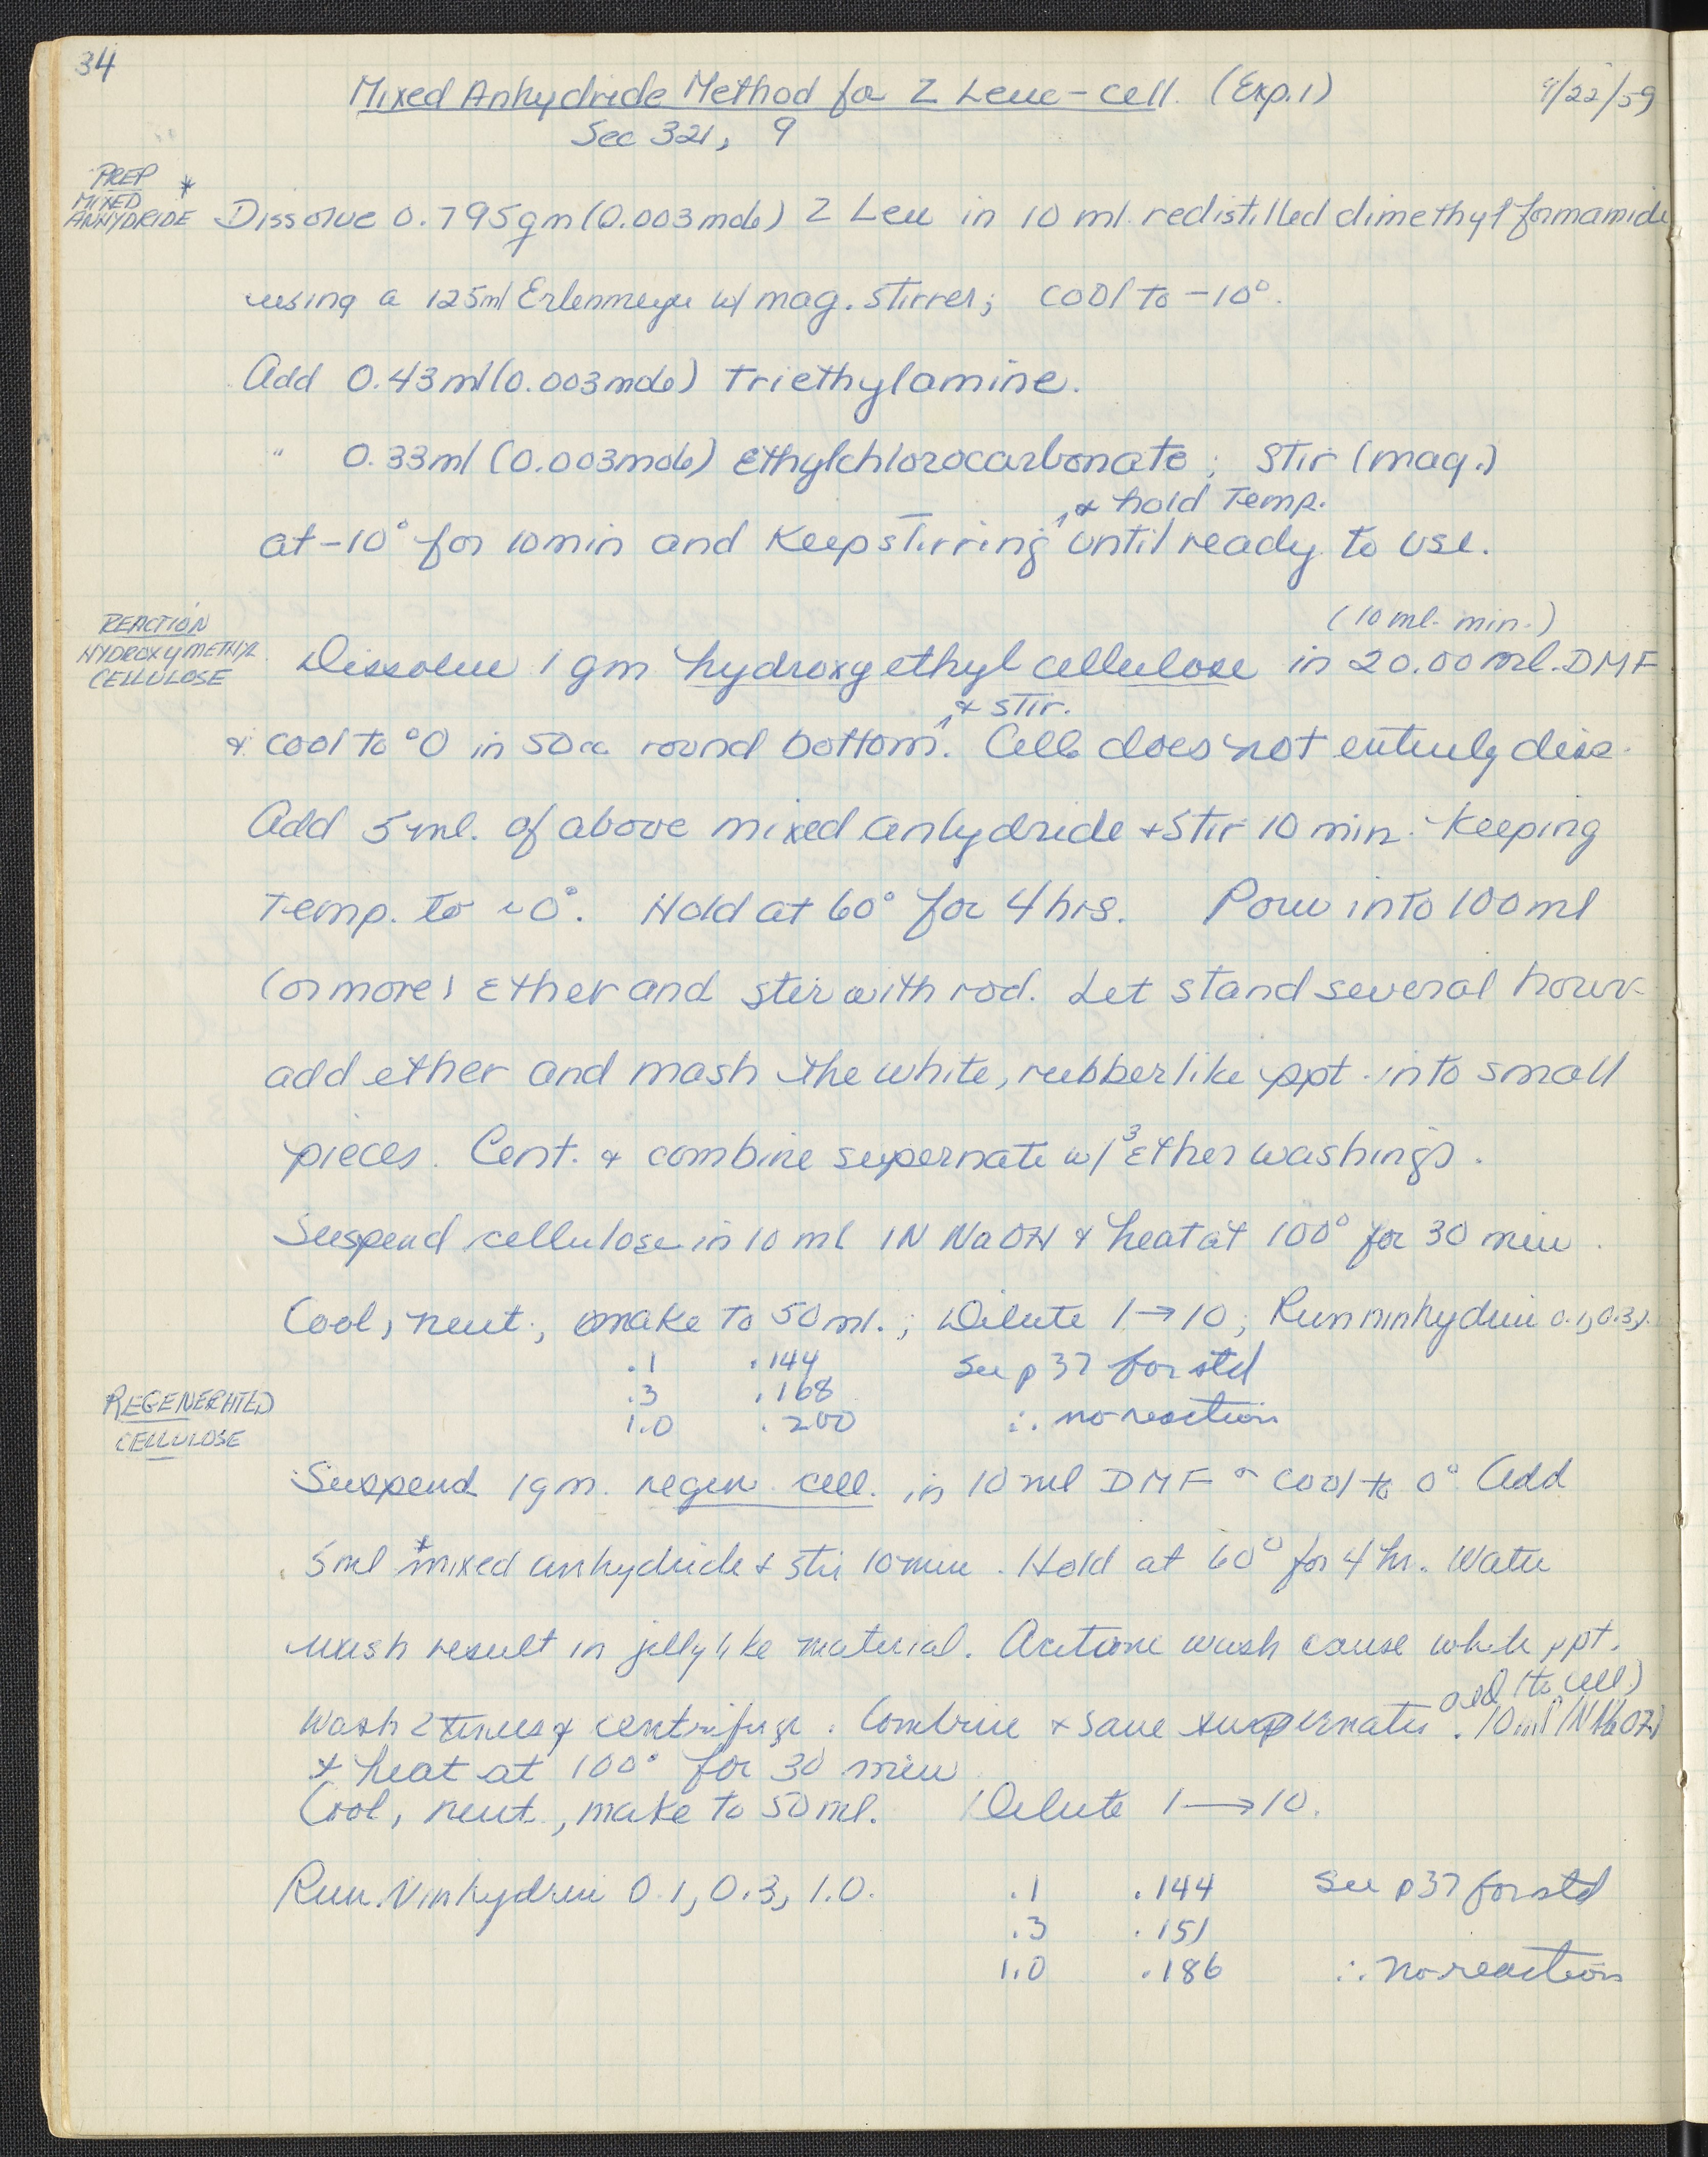 34
Mixed Anhydride Method for Z Leuc-cell. (Exp.1)
4/22/59
Sec 321, 9
PREP
MIXED *
ANHYDRIDE
Dissolve 0.795gm (0.003mole) Z Leu in 10 ml redistilled dimethyl formamide
using a 125ml Erlenmeyer w/ mag. stirrer; cool to -10°.
Add 0.43ml (0.003mole) triethylamine.
" 0.33ml (0.003mole) Ethylchlorocarbonate; Stir (mag.)
& hold Temp.
at -10° for 10min and Keep stirring until ready to use.
REACTION
HYDROXYMETHYL
CELLULOSE
(10 ml. min.)
Dissolve 1 gm hydroxyethyl cellulose in 20.00 ml. DMF
& stir.
& cool to °0 in 50cc round bottom. Cell does not entirely diss.
Add 5 ml. of above mixed anhydride & Stir 10 min. Keeping
Temp. to ~0°. Hold at 60° for 4 hrs. Pour into 100ml
(or more) Ether and stir with rod. Let stand several hours
add ether and mash the white, rubberlike ppt. into small
pieces. Cent. & combine supernate w/ 3 Ether washings.
Suspend cellulose in 10 ml 1N NaOH & heat at 100° for 30 min.
Cool, neut., make to 50 ml.; Dilute 1→10; Run ninhydrin 0.1, 0.3,
.1 .144 See p 37 for std
.3 .168
1.0 .200 ∴ no reaction
REGENERATED
CELLULOSE
Suspend 1gm. regen. cell. in 10 ml DMF & cool to 0° Add
5ml *mixed anhydride & stir 10 min. Hold at 60° for 4 hr. Water
wash result in jellylike material. Acetone wash cause white ppt.
add (to cell)
Wash 2 times & centrifuge. Combine & save supernates. 10 ml 1N NaOH
& heat at 100° for 30 min
Cool, neut., make to 50 ml. Dilute 1→10.
Run Ninhydrin 0.1, 0.3, 1.0. .1 .144 See p37 for std
.3 .151
1.0 .186 ∴ no reaction